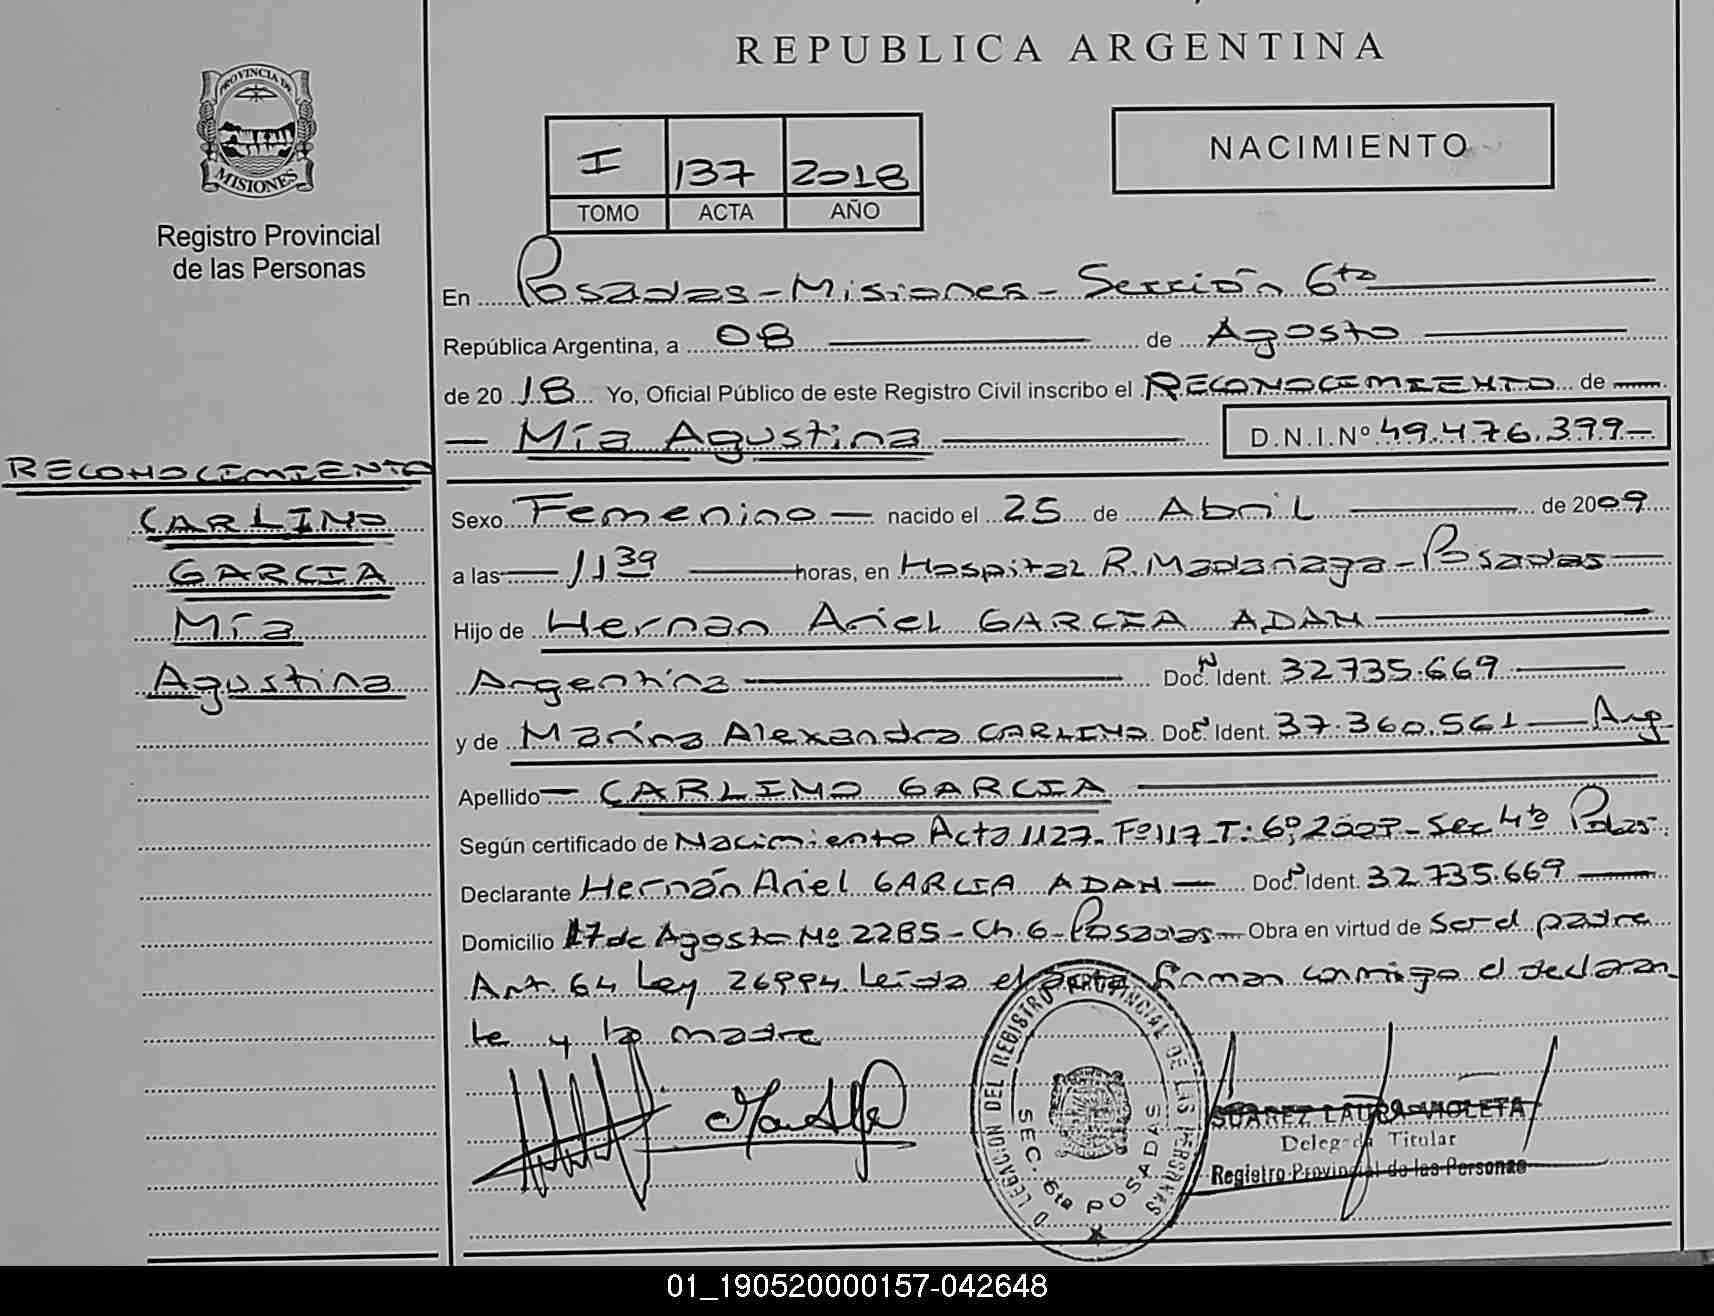 REPUBLICA ARGENTINA
PROVINCIA DE
MISIONES
Registro Provincial
de las Personas
NACIMIENTO
I 137 2018
TOMO ACTA AÑO
En Posadas - Misiones - Sección 6ta
República Argentina, a 08 de Agosto
de 2018 Yo, Oficial Público de este Registro Civil inscribo el RECONOCIMIENTO de
Mía Agustina D.N.I.Nº 49.476.399
RECONOCIMIENTO
CARLINO
GARCIA
Mía
Agustina
Sexo Femenino nacido el 25 de Abril de 2009
a las 11 39 horas, en Hospital R. Madariaga - Posadas
Hijo de Hernan Ariel GARCIA ADAN
Argentina Doc. Ident. 32.735.669
y de Marina Alexandra CARLINO Doc. Ident. 37.360.561 Arg.
Apellido CARLINO GARCIA
Según certificado de Nacimiento Acta 1127 - Fº 117 - T: 6º, - Sec 4ta
Declarante Hernán Ariel GARCIA ADAN Doc. Ident. 32.735.669
Domicilio 17 de Agosto Nº 2285 - Ch. 6 - Posadas - Obra en virtud de ser el padre
Art. 64 Ley 26994. Leída el acta firman conmigo el declaran
te y la madre
DELEGACION DEL REGISTRO PROVINCIAL DE LAS PERSONAS
SEC. 6ta POSADAS
SUAREZ LAURA VIOLETA
Delegada Titular
Registro Provincial de las Personas
01_190520000157-042648